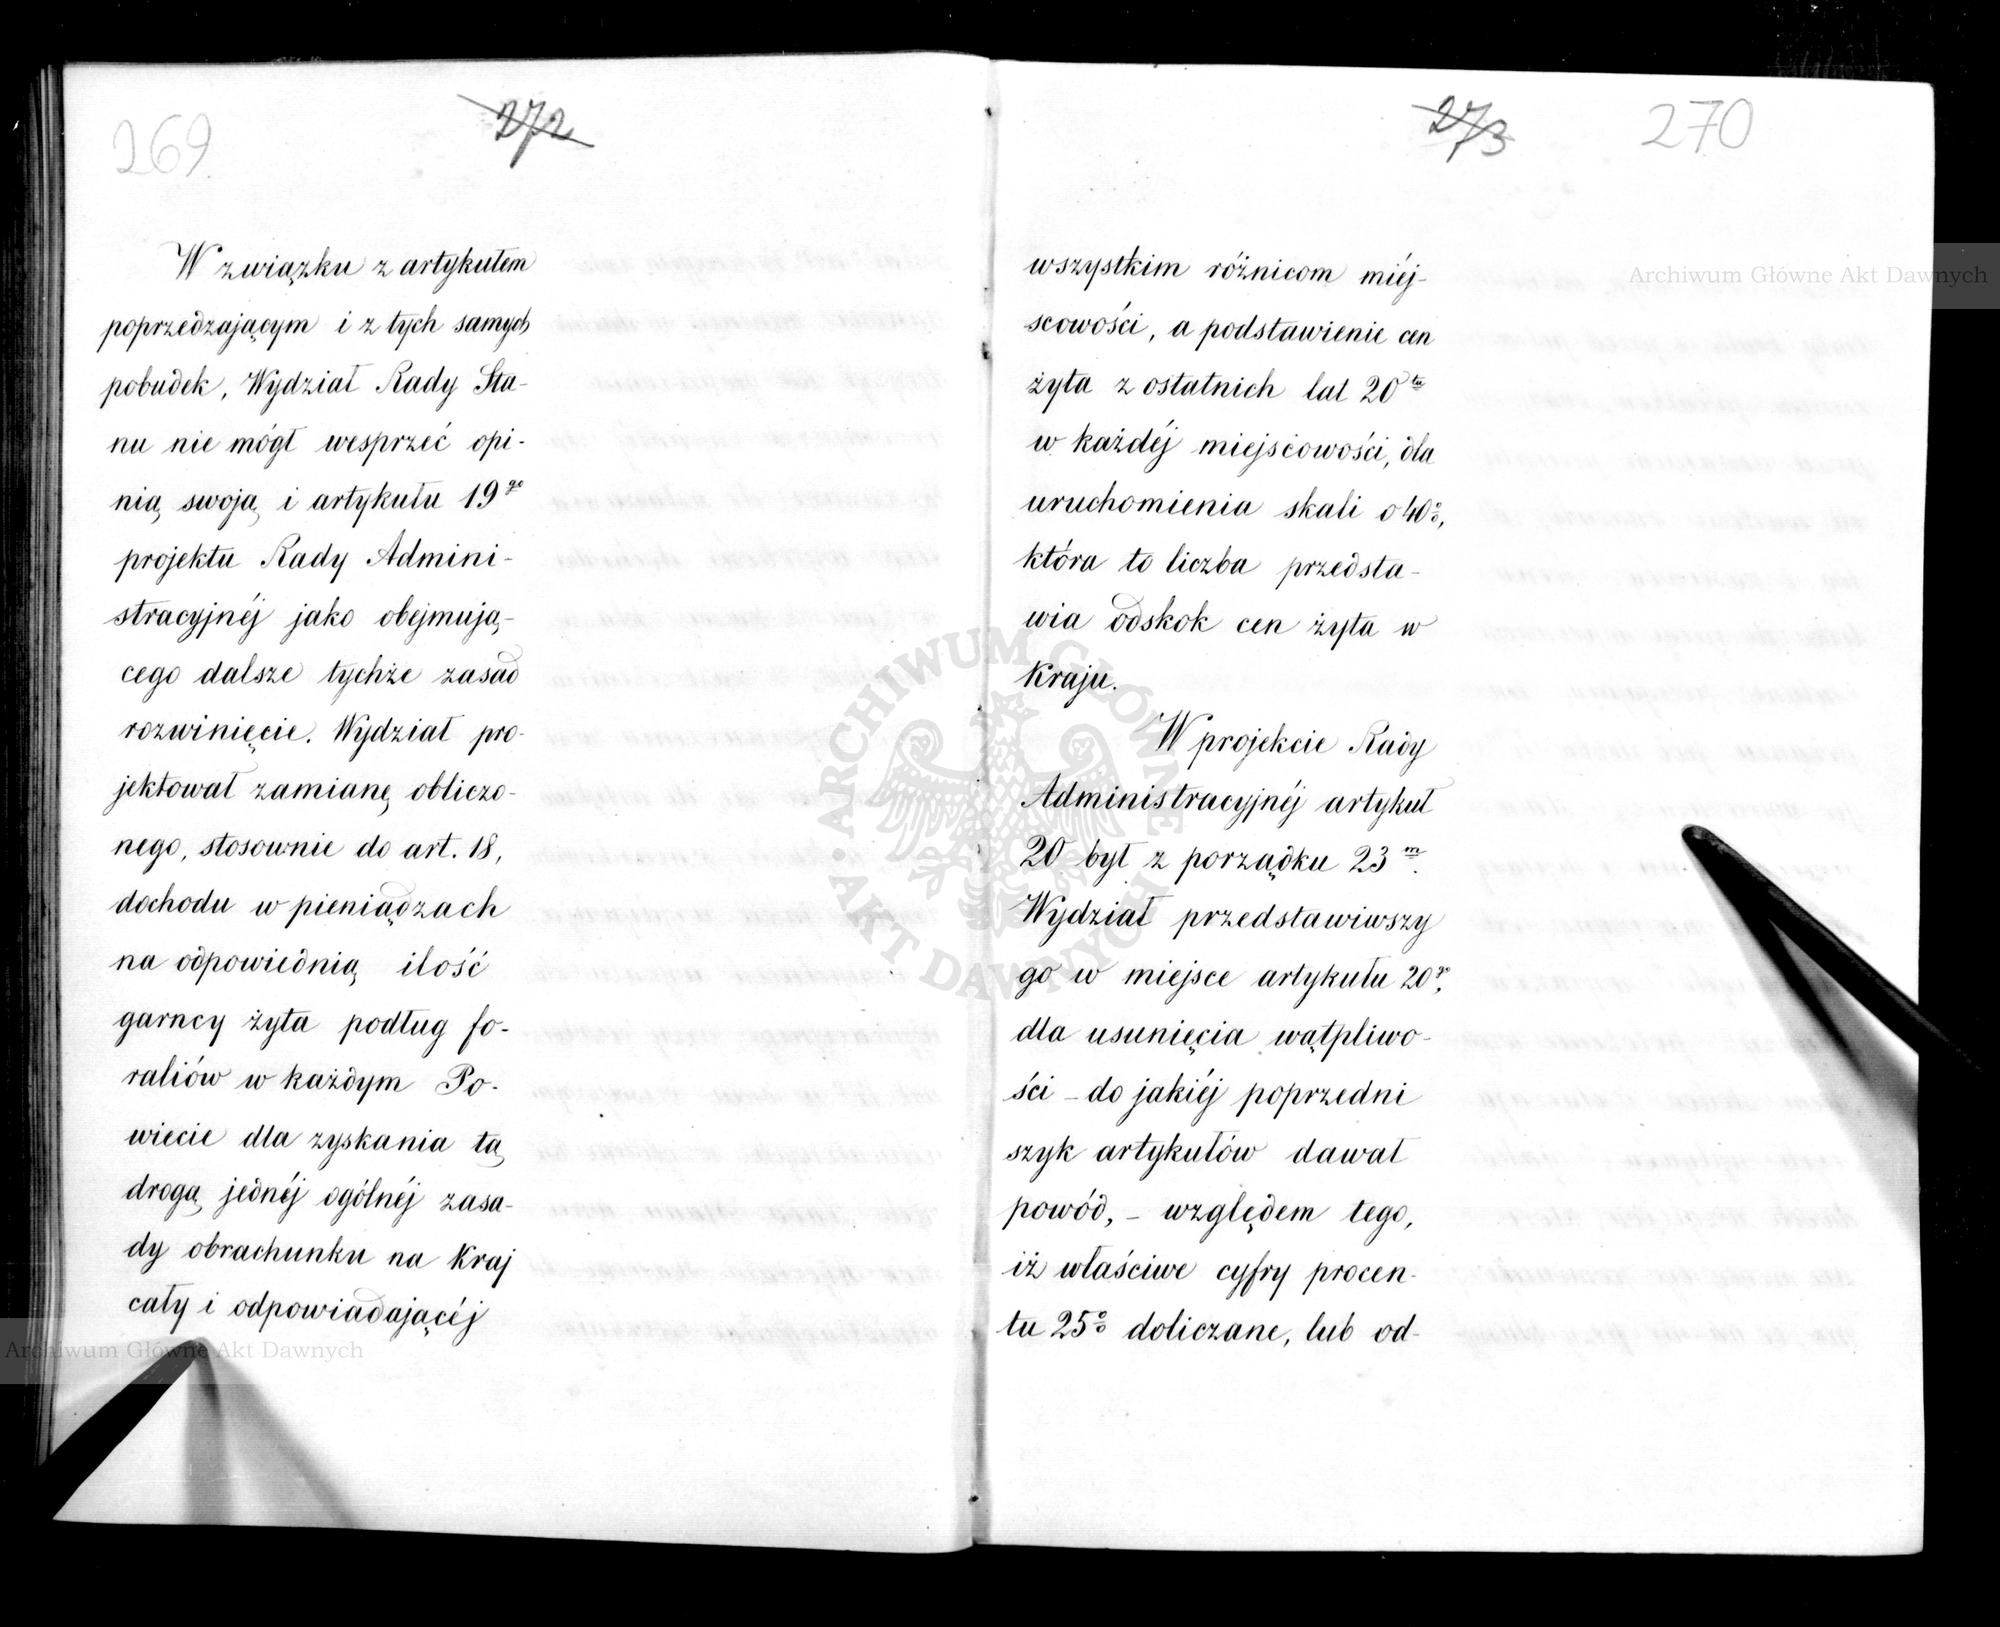 269
272
W związku z artykułem
poprzedzającym i z tych samych
pobudek, Wydział Rady Sta-
nu nie mógł wesprzeć opi-
nią swoją i artykułu 19go
projektu Rady Admini-
stracyjnéj jako obejmują-
cego dalsze tychże zasad
rozwinięcie. Wydział pro-
jektował zamianę obliczo-
nego, stosownie do art. 18,
dochodu w pieniądzach
na odpowiednią ilość
garncy żyta podług fo-
raliów w każdym Po-
wiecie dla zyskania tą
drogą jednéj ogólnéj zasa-
dy obrachunku na Kraj
cały i odpowiadającéj
273
270
wszystkim różnicom miéj-
scowości, a podstawienie cen
żyta z ostatnich lat 20tu
w każdéj miejscowości, dla
uruchomienia skali o 40%,
która to liczba przedsta-
wia odskok cen żyta w
Kraju.
W projekcie Rady
Administracyjnéj artykuł
20 był z porządku 23m.
Wydział przedstawiwszy
go w miejsce artykułu 20go,
dla usunięcia wątpliwo-
ści - do jakiéj poprzedni
szyk artykułów dawał
powód, - względem tego,
iż właściwe cyfry procen-
tu 25% doliczane, lub od-
Archiwum Główne Akt Dawnych
Archiwum Główne Akt Dawnych
ARCHIWUM GŁÓWNE
AKT DAWNYCH